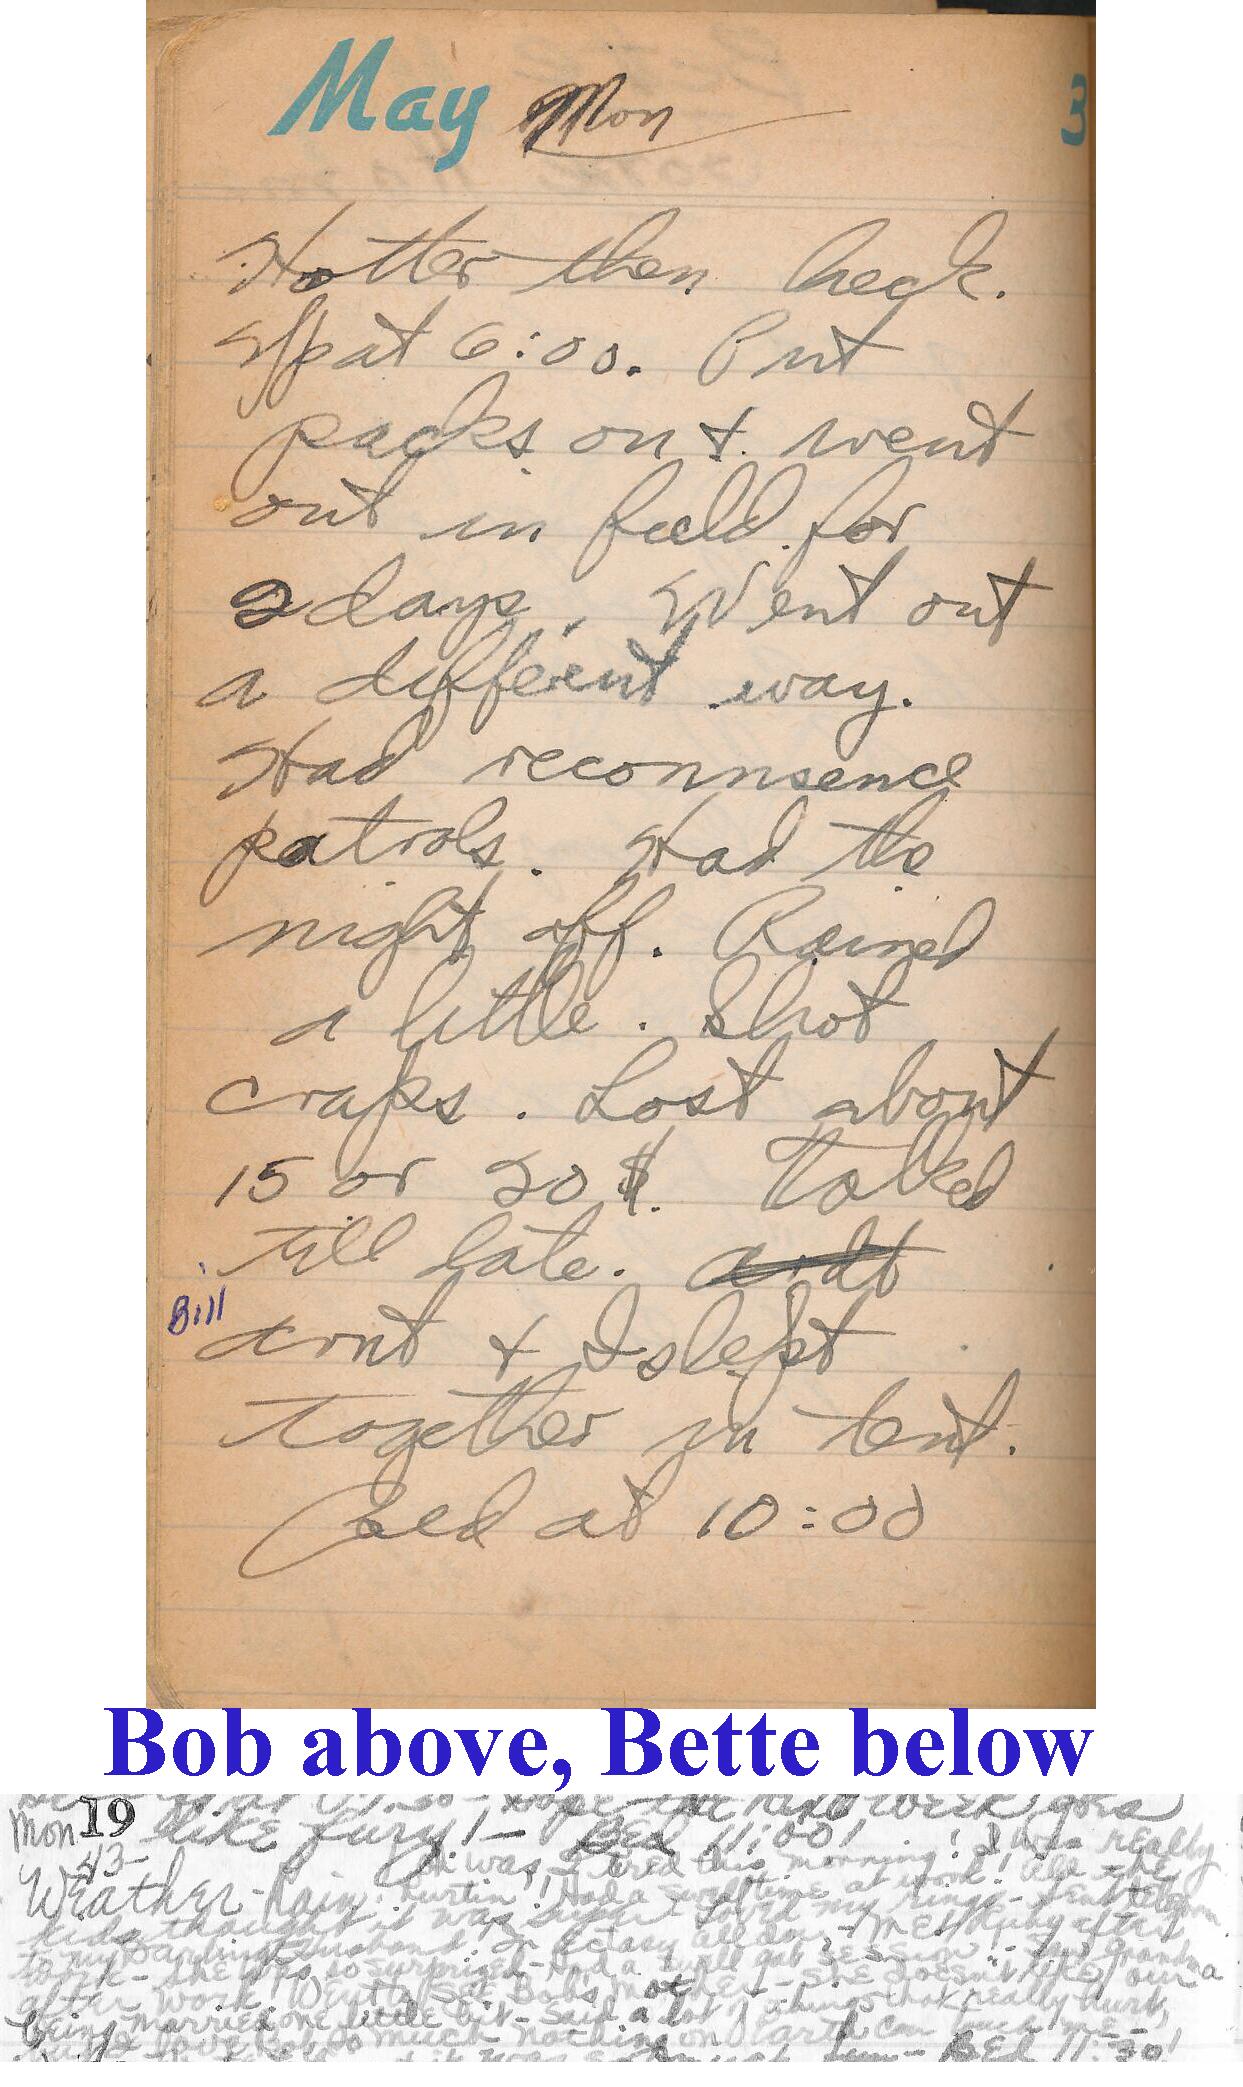 May Mon 3
Hotter then heck.
Up at 6:00. Put
packs on & went
out in field for
2 days. Went out
a different way.
Had reconnsence
patrols. Had the
night off. Rained
a little. Shot
craps. Lost about
15 or 20 $. Talked
till late.
Bill
Arnt & I slept
together in tent.
Bed at 10:00
Bob above, Bette below
week goes
Mon 19 like fury! — Bed 11:00!
43-
Weather - Rain! was tired this morning! I was really
hurtin'! Had a swell time at work! All the
kids thought it was super - loved my rings - sent telegram
to my Darling Husband. In ectasy all day - Met Duhy after
work - she was so surprised - Had a swell gab session! -
after work. Dutty Bob's mother - she doesn't like our
being married one little bit - said a lot of things that really hurt,
love Bob so much nothing on Earth can
Bed 11:30!